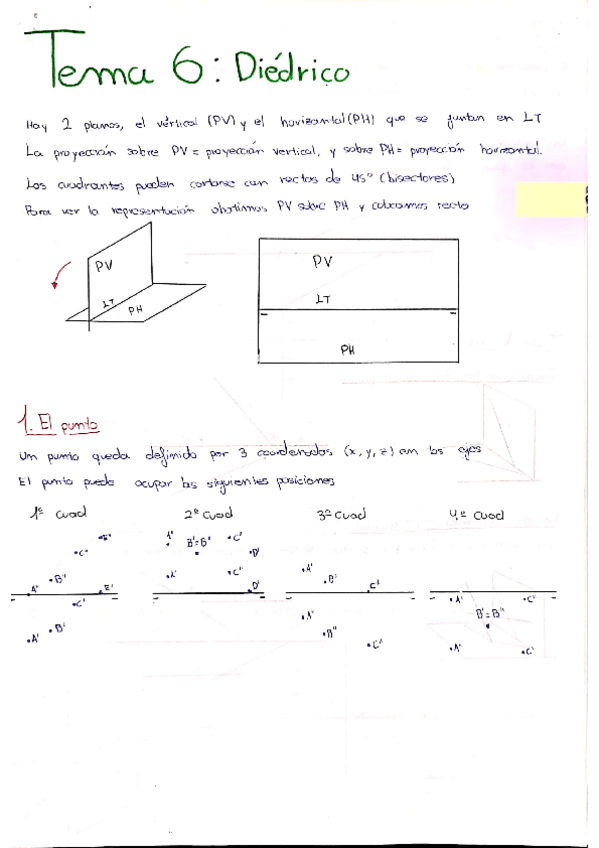 Tema 6: Diédrico
Hay 2 planos, el vértical (PV) y el horizontal (PH) que se juntan en LT
La proyección sobre PV = proyección vertical, y sobre PH = proyección horizontal.
Los cuadrantes pueden cortarse con rectas de 45º (bisectores)
Para ver la representación abatimos PV sobre PH y colocamos recto
PV
LT
PH
PV
LT
PH
1. El punto
Un punto queda definido por 3 coordenadas (x, y, z) con los ejes
El punto puede ocupar las siguientes posiciones
1º Cuad 2º Cuad 3º Cuad 4º Cuad